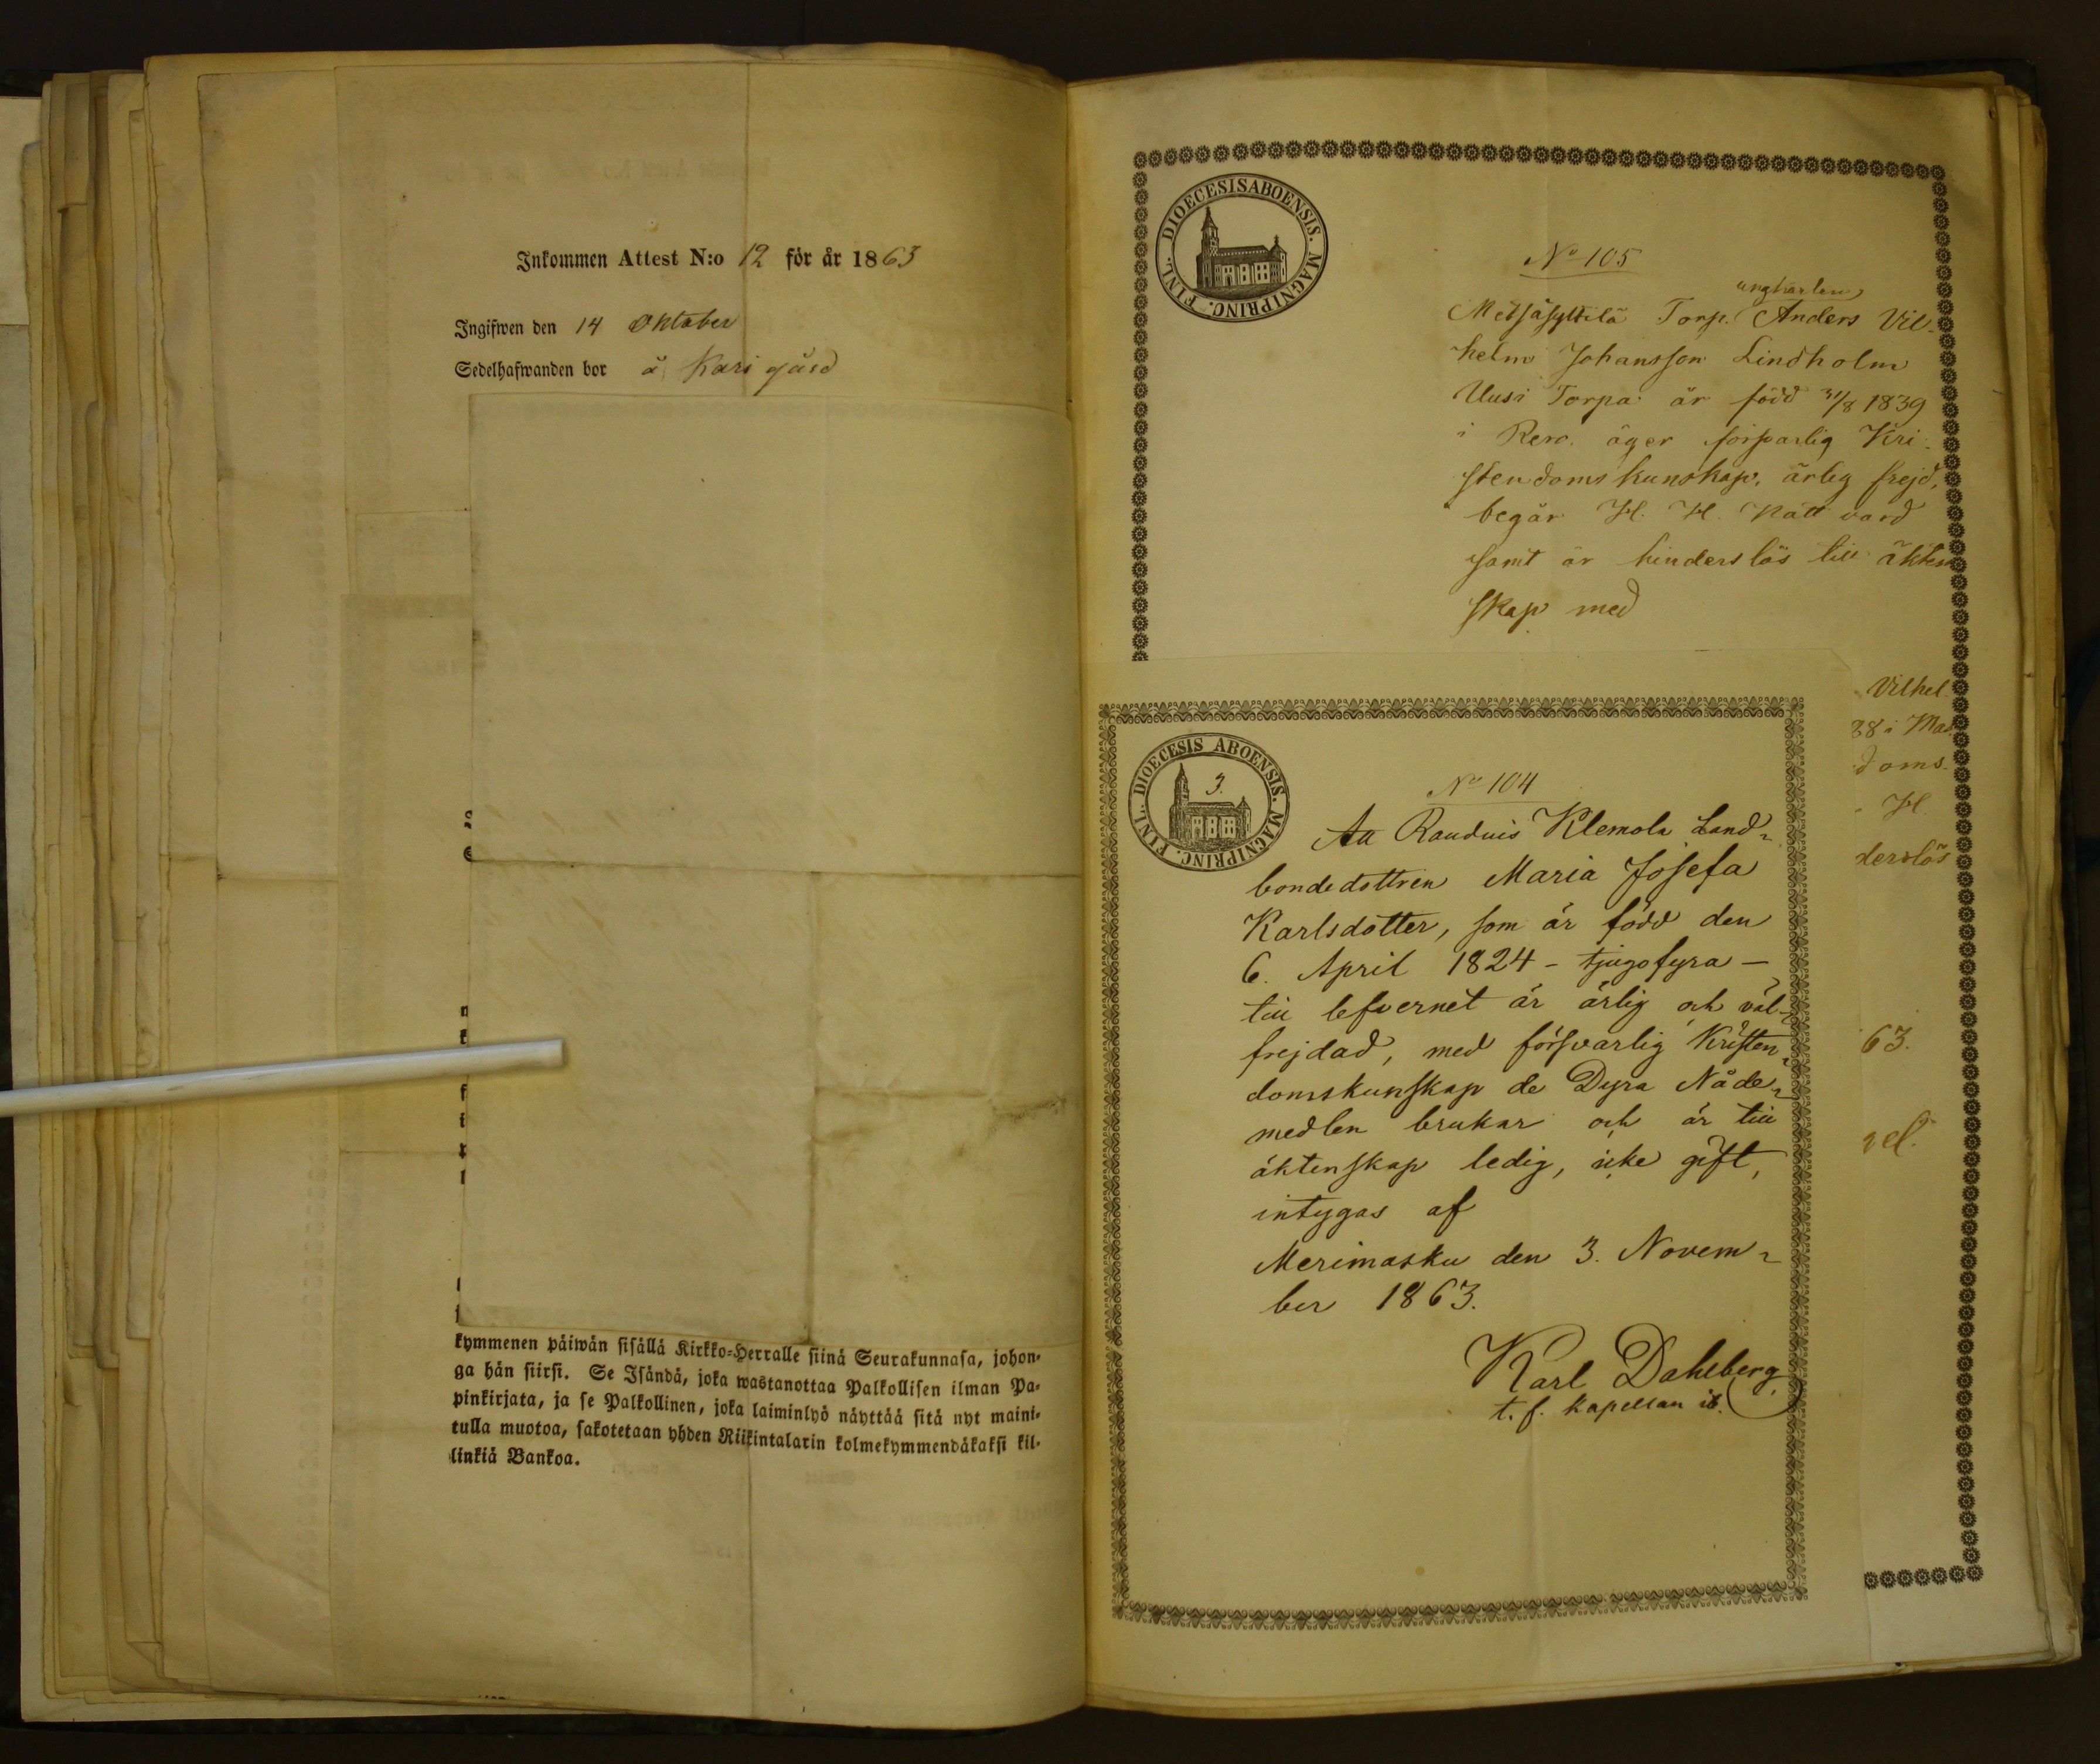 Inkommen Attest N:o 12 för år 1863
Ingifwen den 14 Oktober
Sedelhafwanden bor å Karis gård
kymmenen päiwän sisällä Kirkko-Herralle siinä Seurakunnasa, johon-
ga hän siirsi. Se Isändä, joka wastanottaa Palkollisen ilman Pa-
pinkirjata, ja se Palkollinen, joka laiminlyö näyttää sitä nyt maini-
tulla muotoa, sakotetaan yhden Riikintalarin kolmekymmendäkaksi kil-
linkiä Bankoa.
DIOECESIS ABOENSIS. MAGNI PRINC. FINL.
No 105
ungkarlen
Torp. Anders Vil-
helm Johansson Lindholm
Uusi Torpa är född 31/8 1839
i Rero. äger försvarlig Kri-
stendomskunskap, ärlig frejd,
begår H. H. Nattvard
samt är hinderslös till äkten
skap med
Vilhel
38 i Mas
doms-
H
derslös
63.
DIOECESIS ABOENSIS. MAGNI PRINC. FINL.
3.
No 104
Att Rauduis Klemola Land-
bondedottren Maria Josefa
Karlsdotter, som är född den
6. April 1824 - tjugofyra -
till lefvernet är ärlig och väl-
frejdad, med försvarlig Kristen-
domskunskap de Dyra Nåde-
medlen brukar och är till
äktenskap ledig, icke gift,
intygas af
Merimasku den 3. Novem-
ber 1863.
Karl Dahlberg
t. f. Kapellan ib.